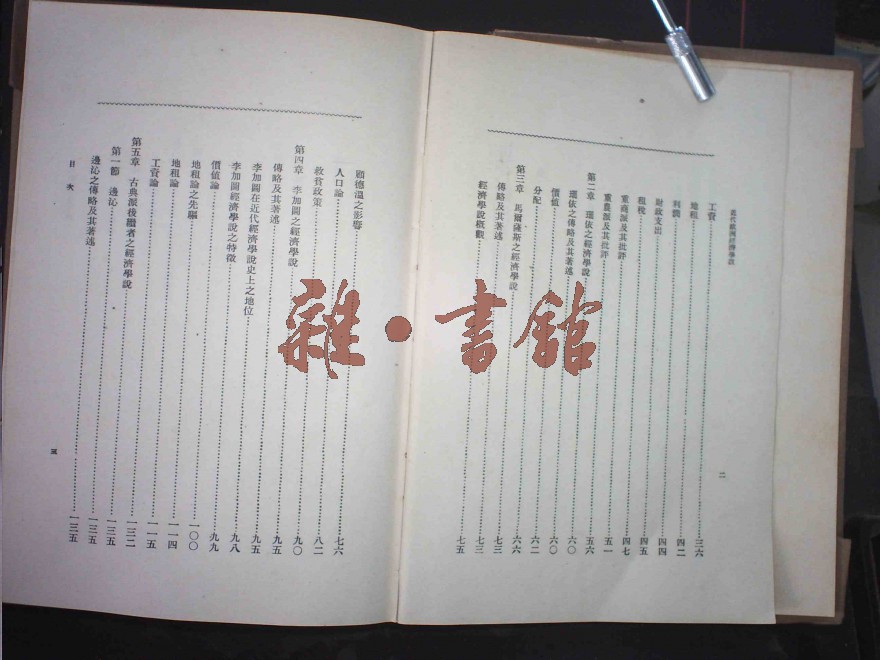 近代歐洲經濟學說
工資……三六
地租……四二
利潤……四四
財政支出……四五
租稅……四七
重商派及其批評……五一
重農派及其批評……五六
第二章 依之經濟學說……六〇
依之傳略及其著述……六〇
價值……六二
分配……六六
第三章 馬爾薩斯之經濟學說……七三
傳略及其著述……七三
經濟學說概觀……七五
二
顧德溫之影響……七六
人口論……八二
救貧政策……九〇
第四章 李加圖之經濟學說……九五
傳略及其著述……九五
李加圖在近代經濟學說史上之地位……九八
李加圖經濟學說之特徵……九九
價值論……一〇〇
地租論之先驅……一一四
地租論……一一五
工資論……一三二
第五章 古典派後繼者之經濟學說……一三五
第一節 邊沁……一三五
邊沁之傳略及其著述……一三五
目次
三
雜·書館